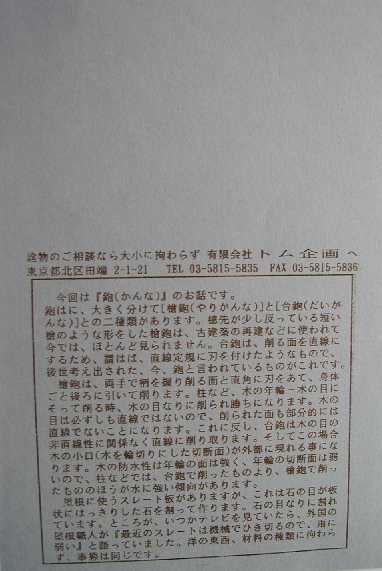 建物のご相談なら大小に拘わらず 有限会社トム企画へ
東京都北区田端 2-1-21 TEL 03-5815-5835 FAX 03-5815-5836
今回は『鉋(かんな)』のお話です。
鉋はに、大きく分けて[槍鉋(やりがんな)]と[台鉋(だいが
んな)]との二種類があります。穂先が少し反っている短い
槍のような形をした槍鉋は、古建築の再建などに使われて
今では、ほとんど見られません。台鉋は、削る面を直線に
するため、謂はば、直線定規に刃を付けたようなもので、
後世考え出された、今、鉋と言われているものがこれです。
槍鉋は、両手で柄を握り削る面と直角に刃をあて、身体
ごと後ろに引いて削ります。柱など、木の年輪一木の目に
そって削る時、木の目なりに削られ勝ちになります。木の
目は必ずしも直線ではないので、削られた面も部分的には
直線でないことになります。これに反し、台鉋は木の目の
非直線性に関係なく直線に削り取ります。そしてこの場合
木の小口(木を輪切りにした切断面)が外部に現れる事にな
ります。木の防水性は年輪の面は強く、年輪の切断面は弱
いので、柱などでは、台鉋で削ったものより、槍鉋で削っ
たもののほうが水に強い傾向があります。
屋根に使うスレート板がありますが、これは石の目が板
状にはっきりした石を割って作ります。石の目なりに割れ
ています。ところが、いつかテレビを見ていたら、外国の
屋根職人が『最近のスレートは機械でひき切るので、雨に
弱い』と語っていました。洋の東西、材料の種類に拘わら
ず、事態は同じです。